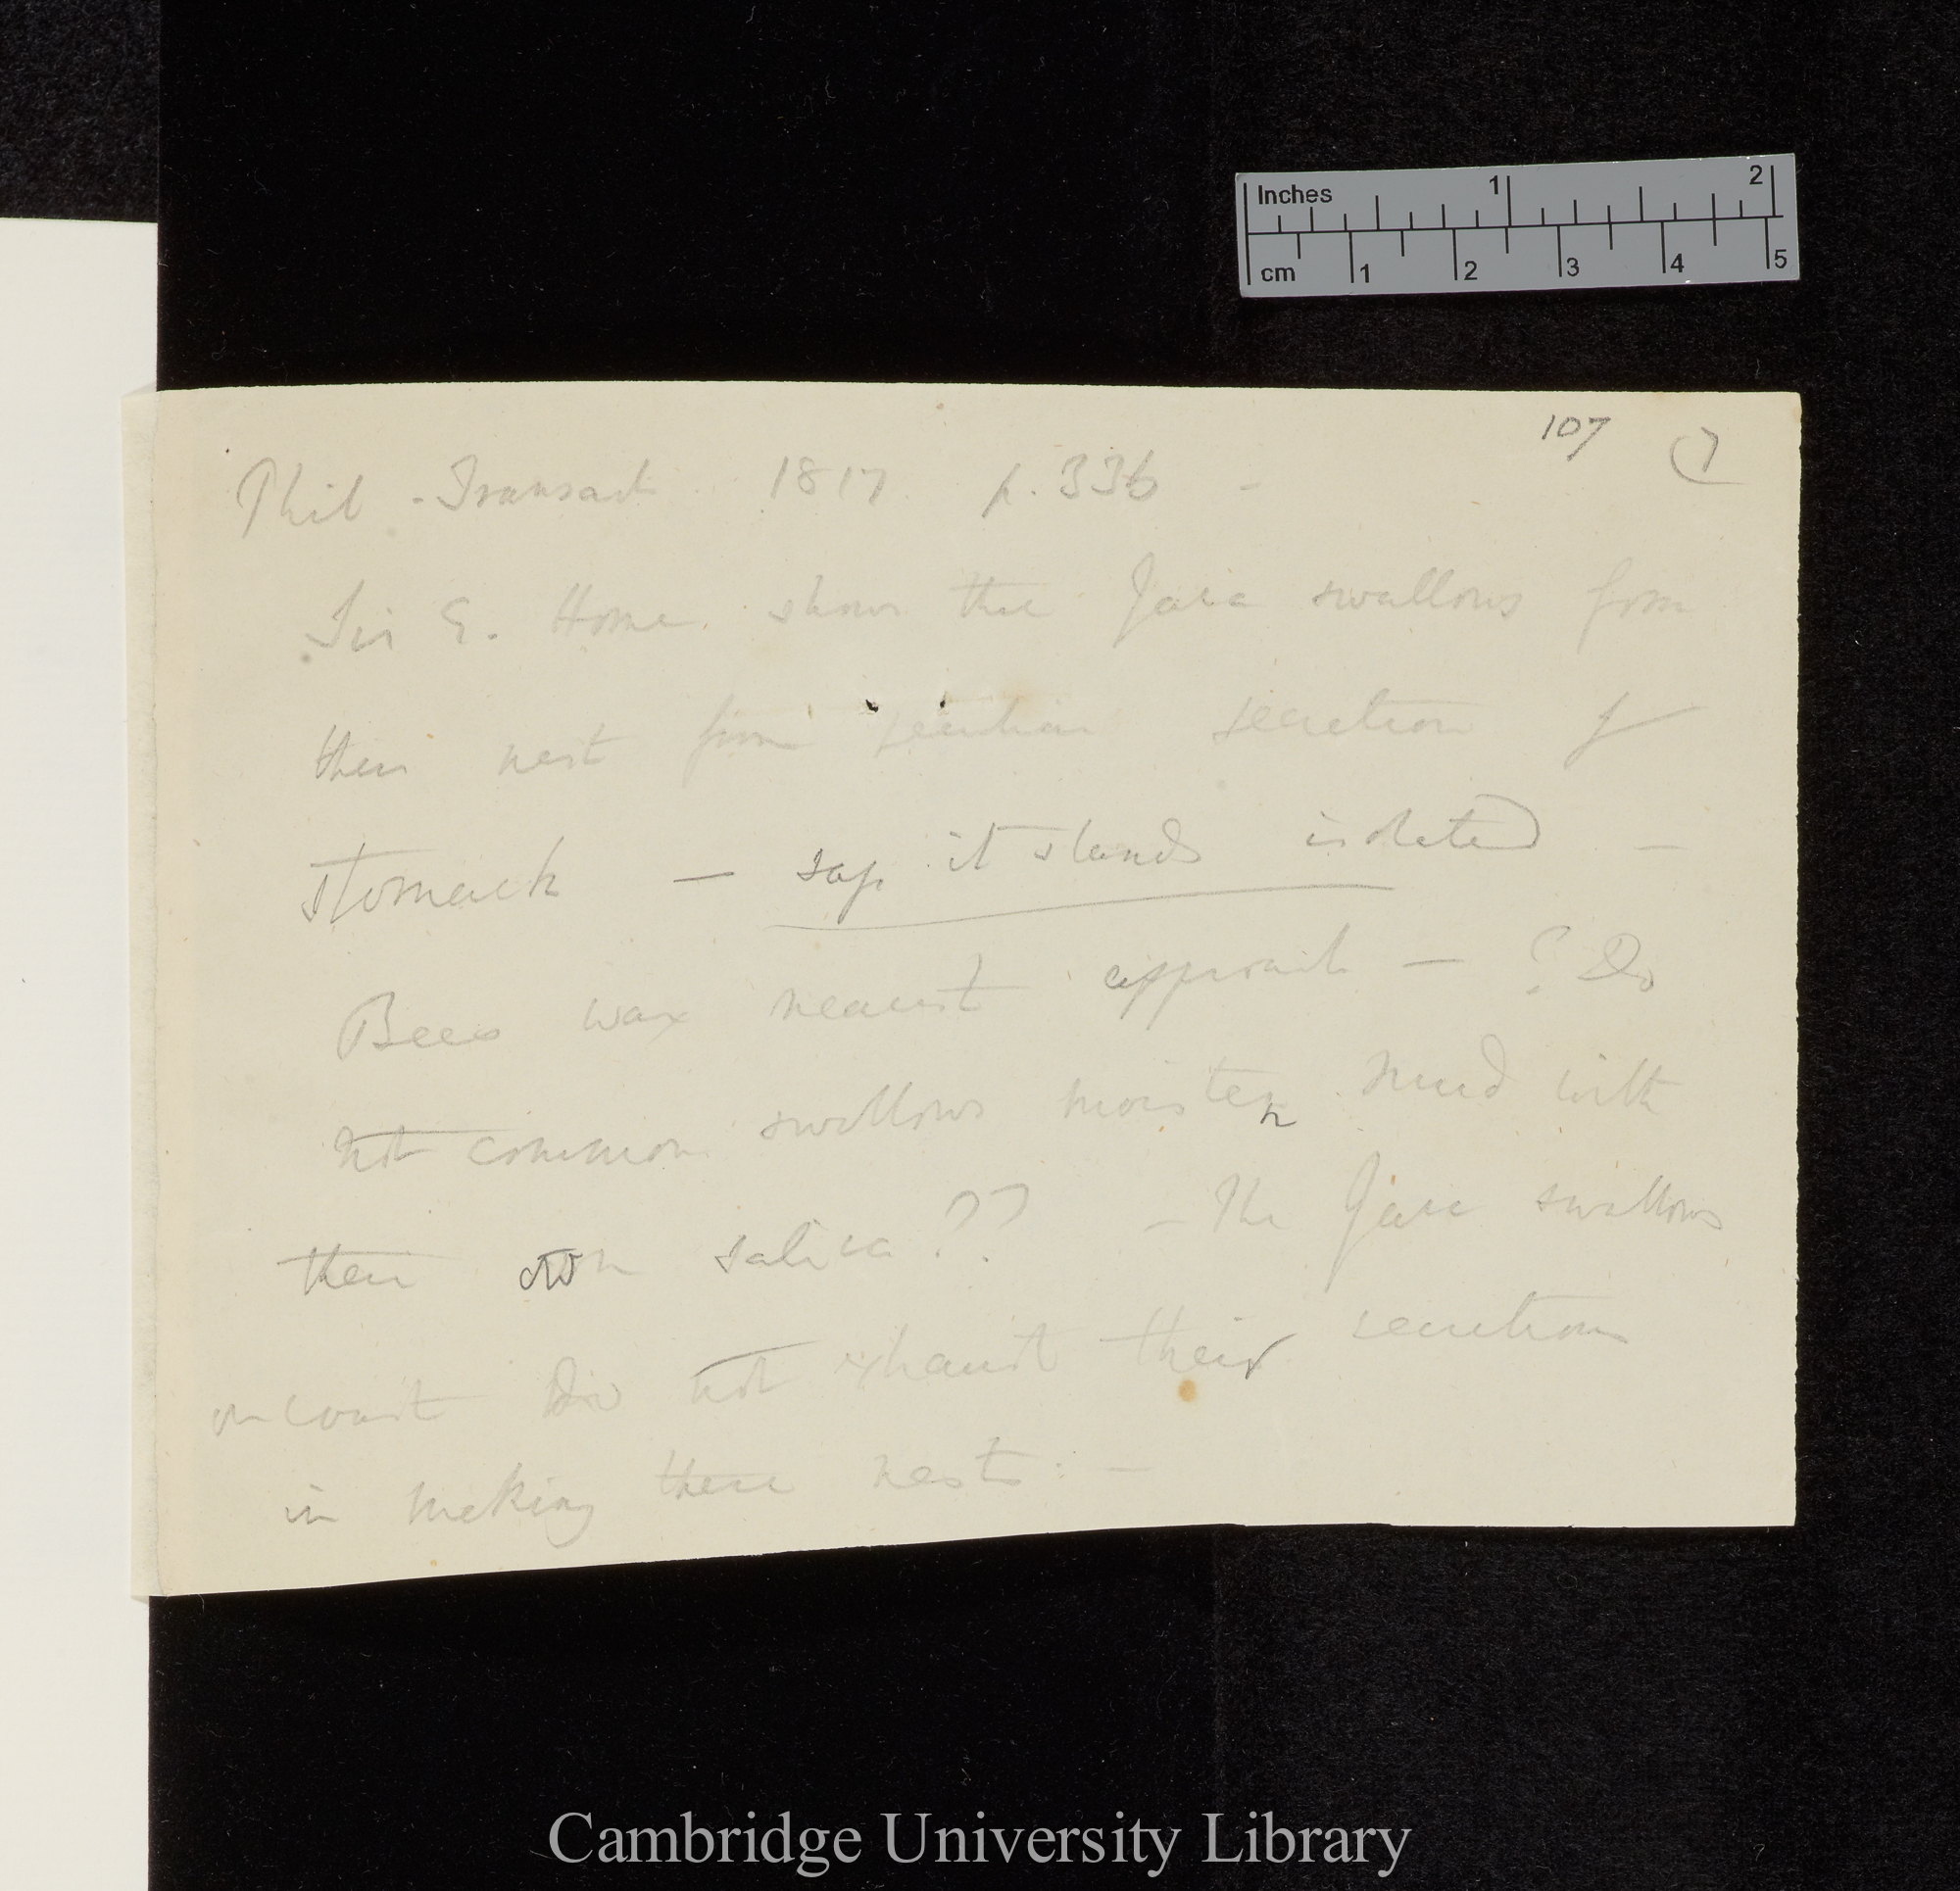 Inches 1 2
cm 1 2 3 4 5
107 7
Phil - Transact 1817 p. 336 -
Sir E. Home shows the Java swallows form
their nest from peculiar secretion of
stomach — says it stands isolated —
Bees wax nearest approach — ? Do
not common swallows moisten mud with
their own saliva?? — The Java swallows
on coast do not exhaust their secretions
in making these nests. —
Cambridge University Library